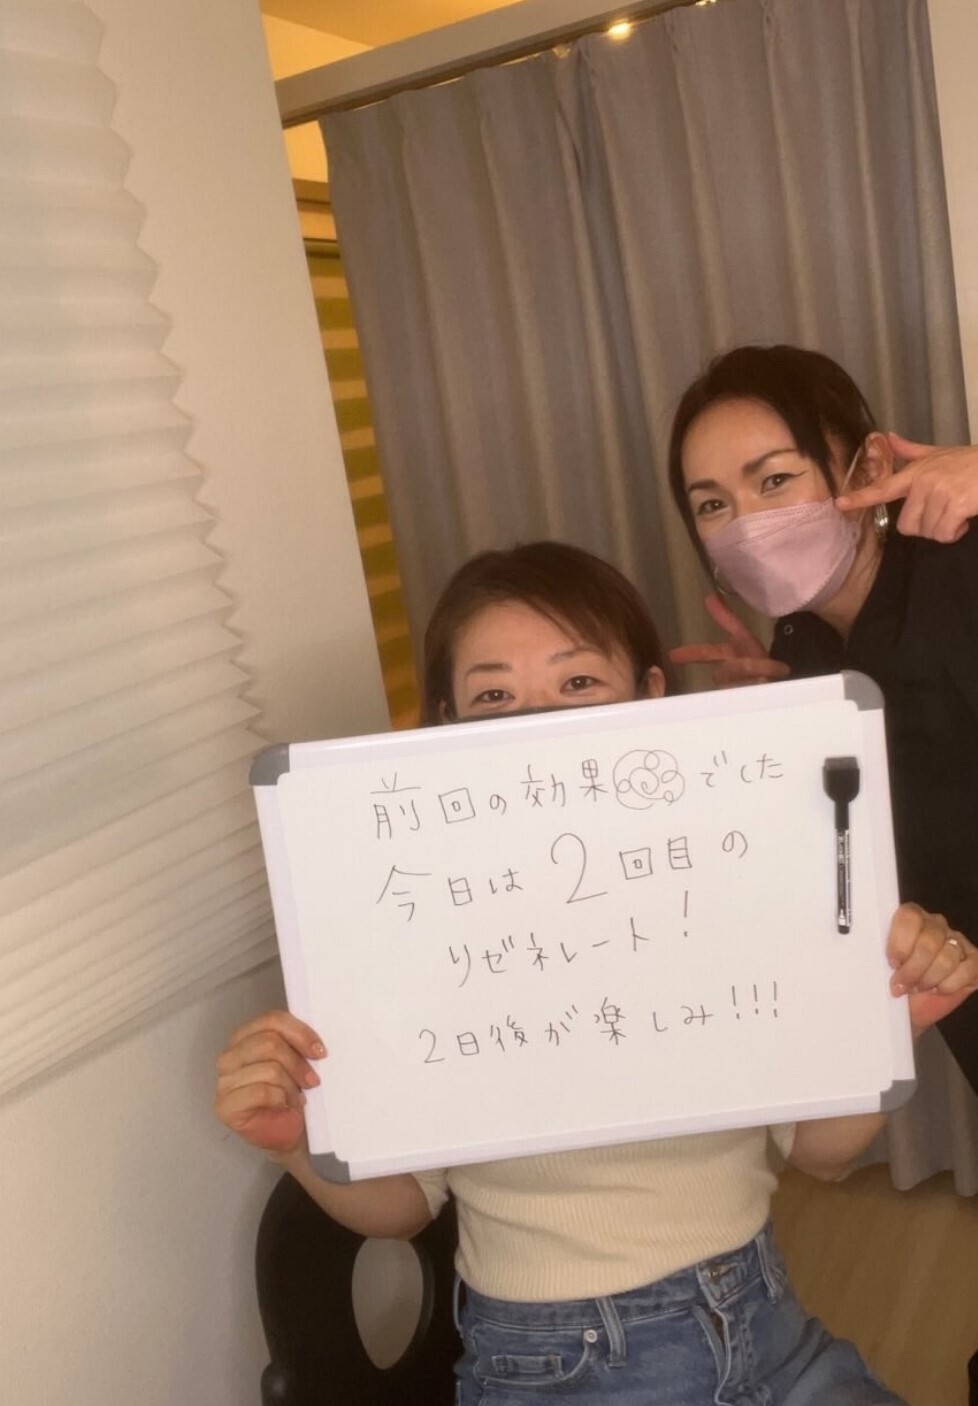 前回の効果💮でした
今日は2回目の
リゼネレート!
2日後が楽しみ!!!